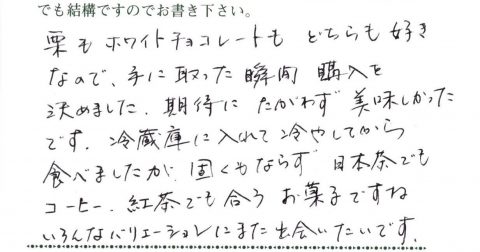 でも結構ですのでお書き下さい。
栗もホワイトチョコレートも どちらも好き
なので、手に取った瞬間 購入を
決めました。期待に たがわず 美味しかった
です。冷蔵庫に入れて冷やしてから
食べましたが 固くもならず 日本茶でも
コーヒー、紅茶でも合う お菓子ですね
いろんなバリエーションにまた出会いたいです。